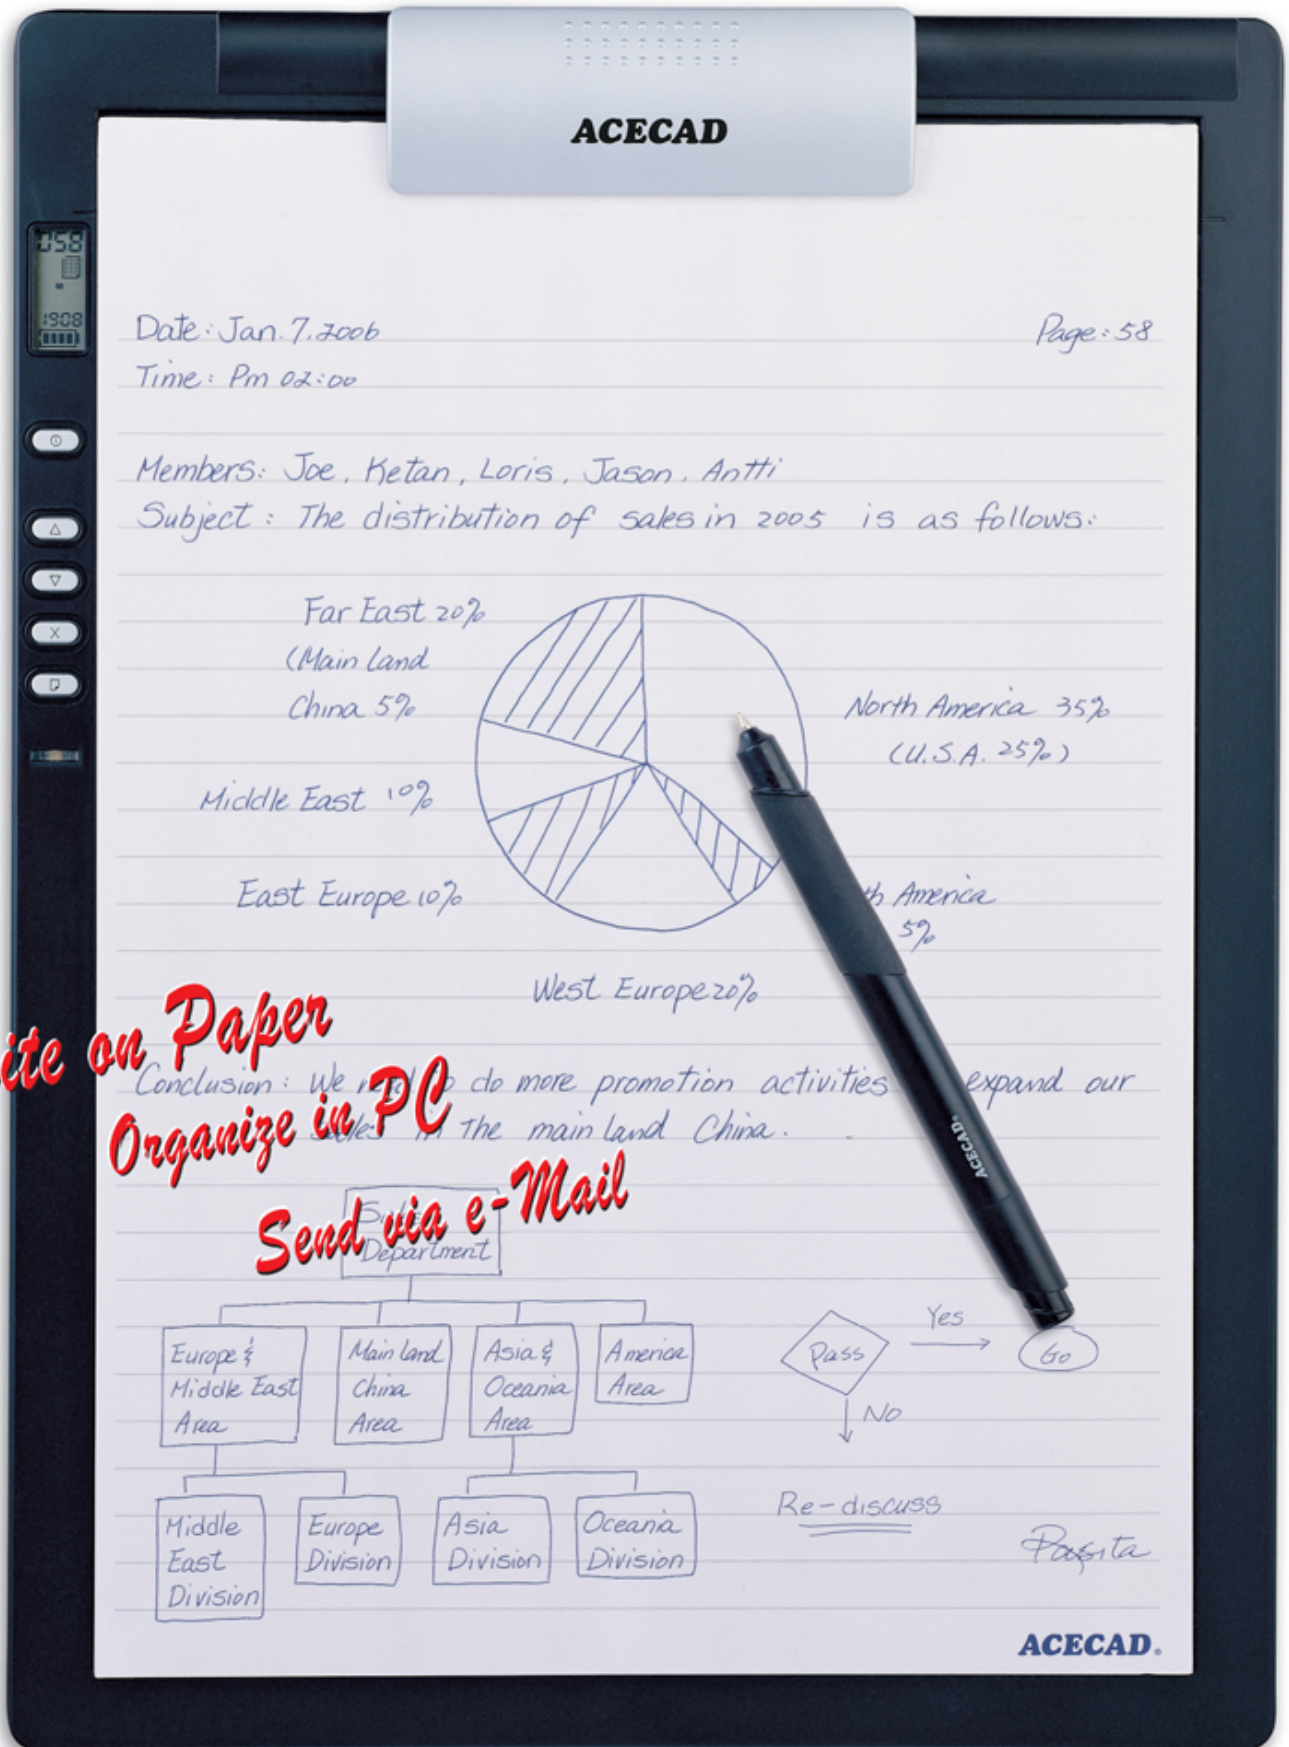 ACECAD
058
1908
Date: Jan. 7. 2006
Page: 58
Time: Pm 02:00
Members: Joe, Ketan, Loris, Jason, Antti
Subject: The distribution of sales in 2005 is as follows:
Far East 20%
(Main land
China 5%
North America 35%
(U.S.A. 25%)
Middle East 10%
East Europe 10%
America
5%
West Europe 20%
on Paper
Organize in PC
Send via e-Mail
Conclusion: We do more promotion activities expand our
in the main land China.
ACECAD
Department
Europe &
Middle East
Area
Main land
China
Area
Asia &
Oceania
Area
America
Area
Pass
Yes
Go
No
Middle
East
Division
Europe
Division
Asia
Division
Oceania
Division
Re-discuss
ACECAD